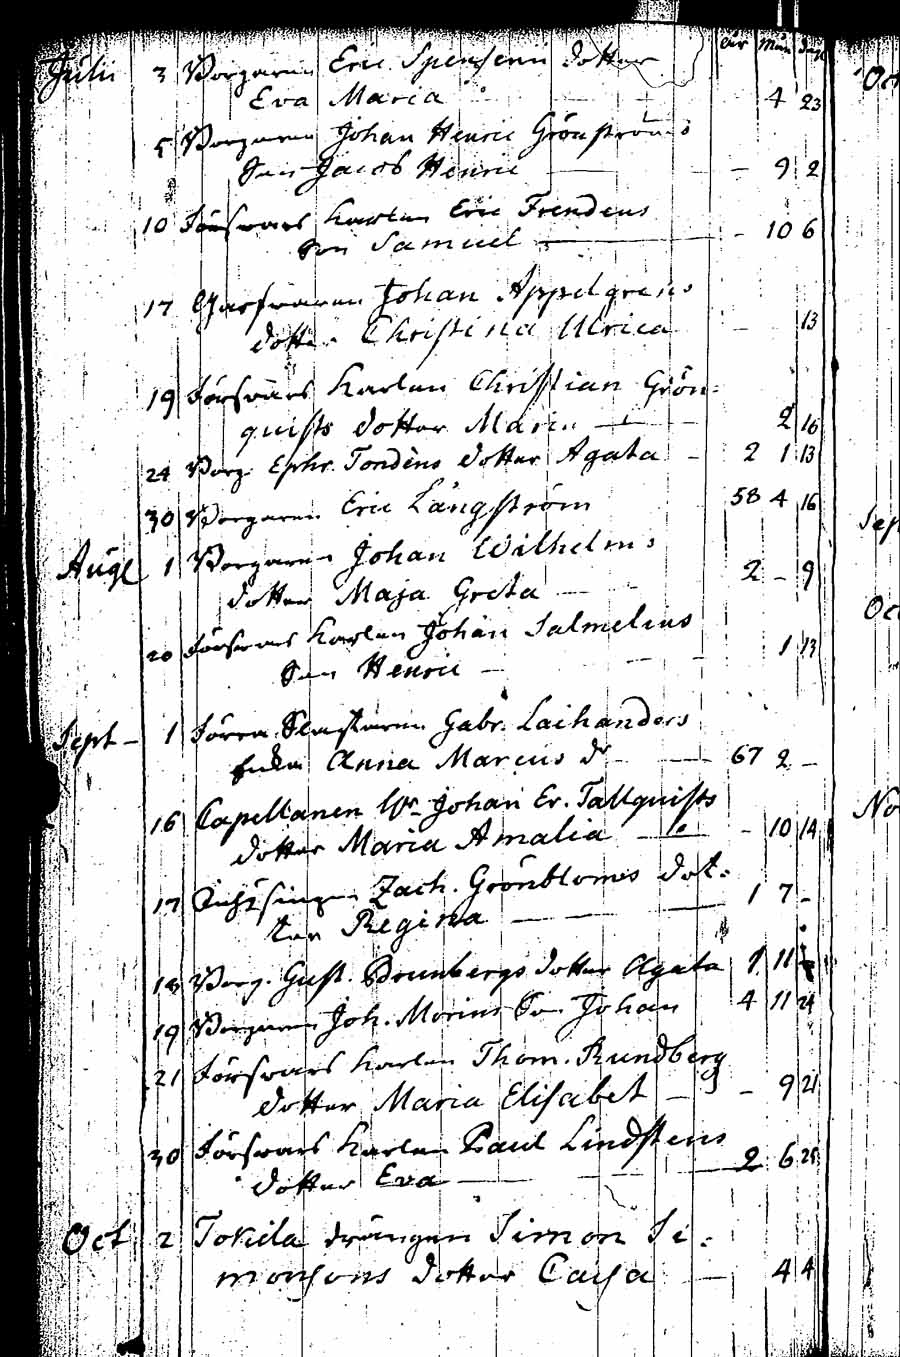 åhr mån dag
Julii 3 Borgaren Eric Spensens dotter
Eva Maria 4 23
5 Borgaren Johan Henric Grönströms
Son Jacob Henric - 9 2
10 Försvars Karlen Eric Frendens
Son Samuel - 10 6
17 Johan Appelgrens
dotter Christina Ulrica - 13
19 Försvars Karlen Christian Grön-
quists dotter Maria 2 16
24 Borg. Ephr. Tondéns dotter Agata - 2 1 13
30 Borgaren Eric Långström 58 4 16
Aug 1 Borgaren Johan Wilhelms
dotter Maja Greta 2 - 9
20 Försvars Karlen Johan Salmelius
Son Henric - 1 13
Sept - 1 Förra Gabr. Laihanders
Enka Anna Marcus dr 67 2 -
16 Capellanen Hr Johan Er. Tallquists
dotter Maria Amalia - 10 14
17 Zach. Grönbloms dot-
ter Regina 1 7 -
18 Borg. Gust. Brunbergs dotter Agata 1 11
19 Borgaren Joh. Morins Son Johan 4 11 21
21 Försvars Karlen Thom. Rundberg
dotter Maria Elisabet - - 9 21
30 Försvars Karlen Paul Lindstens
dotter Eva 2 6 25
Oct 2 Tokila drängen Simon Si-
monsons dotter Caisa - 4 4
Oct
Sep
Oct
No